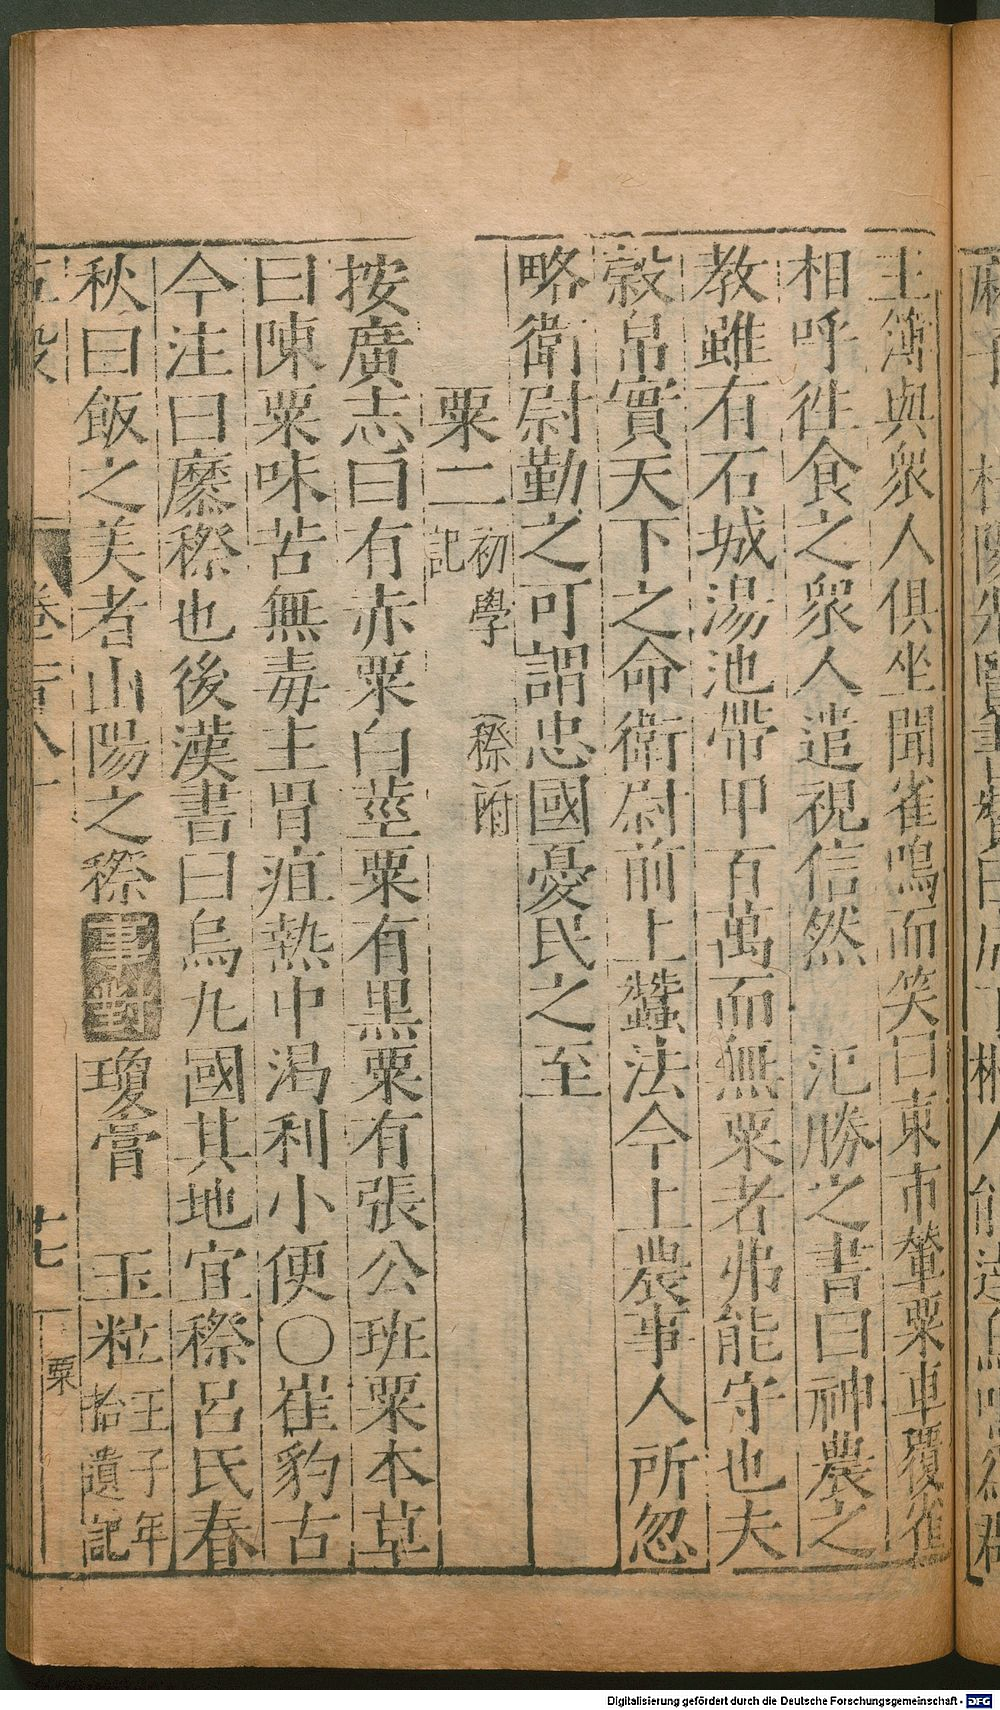 主簿與衆人俱坐聞雀鳴而笑曰東市輦粟車覆雀
相呼徃食之衆人遣視信然　氾勝之書曰神農之
教雖有石城湯池帶甲百萬而無粟者弗能守也夫
榖帛實天下之命衛尉前上蠶法今上農事人所忽
略衛尉勤之可謂忠國憂民之至
粟二初學記　穄附
按廣志曰有赤粟白莖粟有黒粟有張公班粟本草
曰陳粟味苦無毒主胃疸熱中渴利小便○崔豹古
今注曰穈穄也後漢書曰烏九國其地宜穄呂氏春
秋曰飯之美者山陽之穄事對瓊膏　玉粒王子年拾遺記
卷百八十
十七
粟
Digitalisierung gefördert durch die Deutsche Forschungsgemeinschaft - DFG